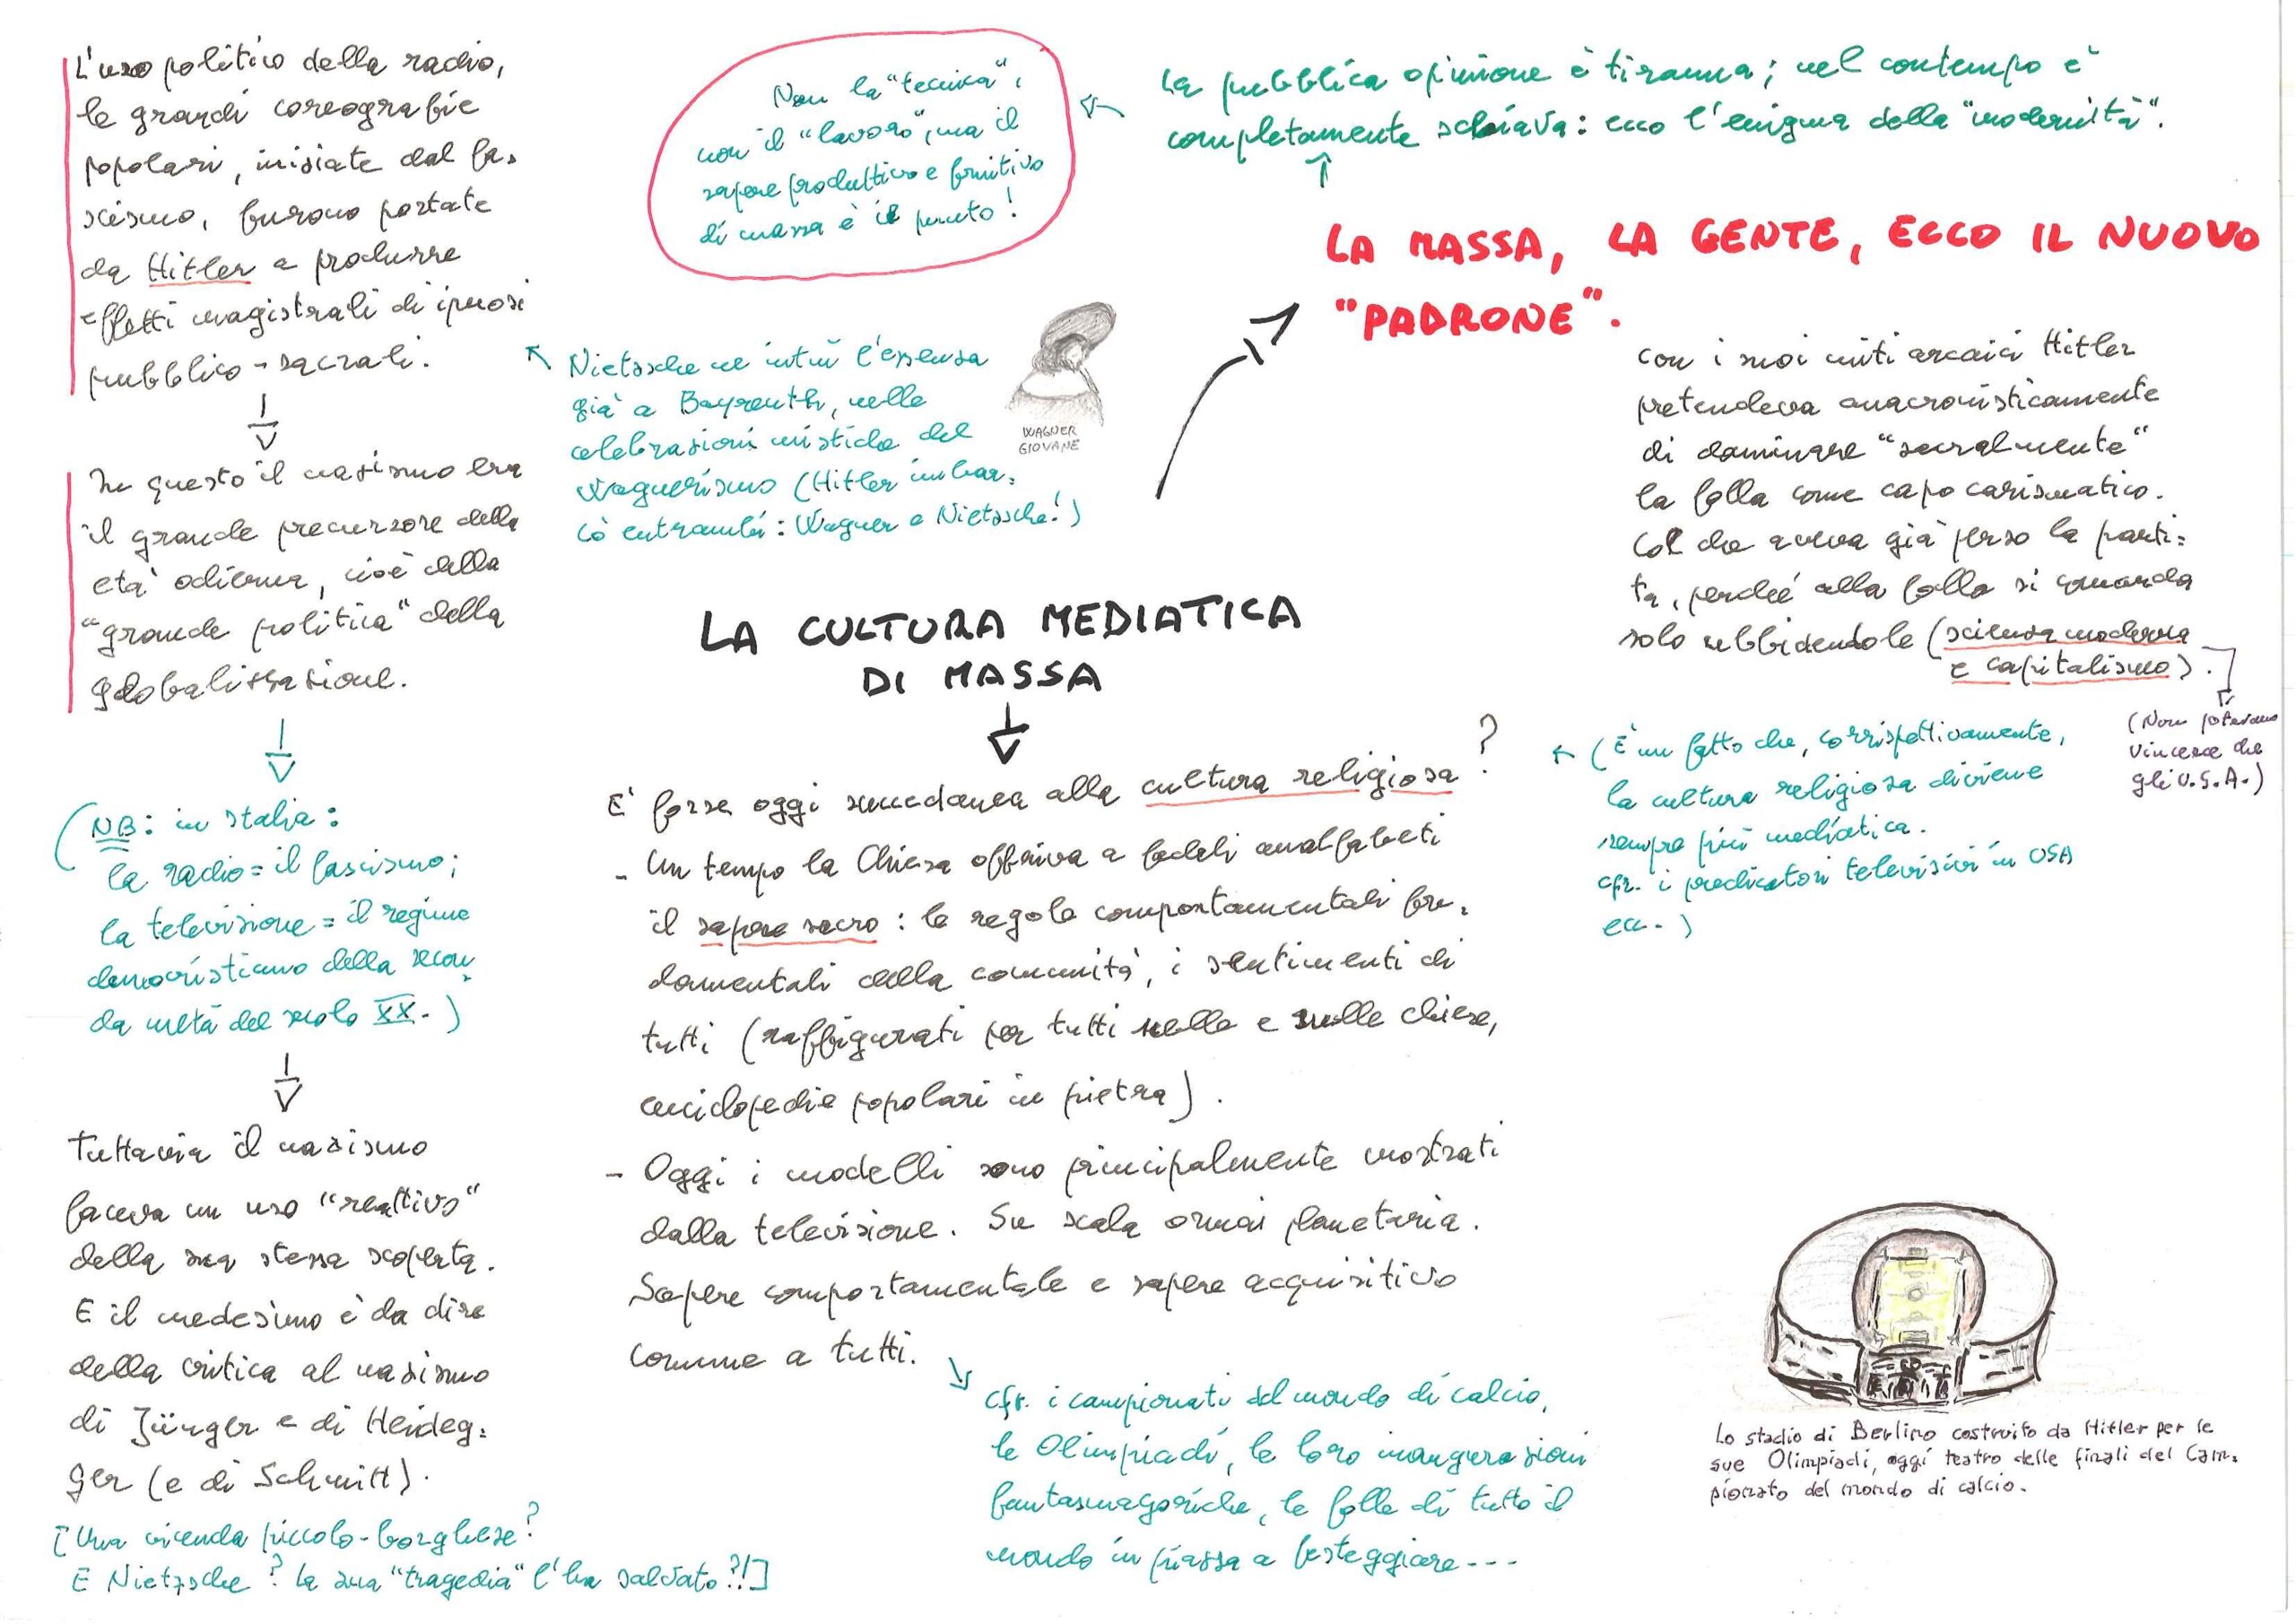 L'uso politico della radio,
le grandi coreografie
popolari, iniziate dal fa-
scismo, furono portate
da Hitler a produrre
effetti magistrali di ipnosi
pubblico-sacrali.
In questo il nazismo era
il grande precursore della
età odierna, cioè della
"grande politica" della
globalizzazione.
(NB: in Italia:
la radio = il fascismo;
la televisione = il regime
democristiano della secon-
da metà del secolo XX.)
Tuttavia il nazismo
faceva un uso "reattivo"
della sua stessa scoperta.
E il medesimo è da dire
della critica al nazismo
di Jünger e di Heideg-
ger (e di Schmitt).
[Una vicenda piccolo-borghese?
E Nietzsche? La sua "tragedia" l'ha salvato?!]
Non la "tecnica",
non il "lavoro", ma il
sapere produttivo e fruitivo
di massa è il punto!
Nietzsche ne intuì l'essenza
già a Bayreuth, nelle
celebrazioni mistiche del
wagnerismo (Hitler imbar-
cò entrambi: Wagner e Nietzsche!)
WAGNER
GIOVANE
La pubblica opinione è tiranna; nel contempo è
completamente schiava: ecco l'enigma della "modernità".
LA MASSA, LA GENTE, ECCO IL NUOVO
"PADRONE".
con i suoi miti arcaici Hitler
pretendeva anacronisticamente
di dominare "sacralmente"
la folla come capo carismatico.
Col che aveva già perso la parti-
ta, perché alla folla si comanda
solo ubbidendole (scienza moderna
e capitalismo).
(Non potevano
vincere che
gli U.S.A.)
LA CULTURA MEDIATICA
DI MASSA
E' forse oggi succedanea alla cultura religiosa?
- Un tempo la Chiesa offriva a fedeli analfabeti
il sapere sacro: le regole comportamentali fon-
damentali della comunità, i sentimenti di
tutti (raffigurati per tutti nelle e sulle chiese,
enciclopedie popolari in pietra).
- Oggi i modelli sono principalmente mostrati
dalla televisione. Su scala ormai planetaria.
Sapere comportamentale e sapere acquisitivo
comune a tutti.
(È un fatto che, corrispettivamente,
la cultura religiosa diviene
sempre più mediatica.
cfr. i predicatori televisivi in USA
ecc.)
cfr. i campionati del mondo di calcio,
le Olimpiadi, le loro inaugurazioni
fantasmagoriche, le folle di tutto il
mondo in piazza a festeggiare---
Lo stadio di Berlino costruito da Hitler per le
sue Olimpiadi, oggi teatro delle finali del Cam-
pionato del mondo di calcio.